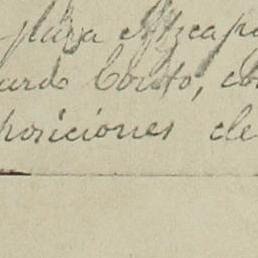 plaza Atzcapo
ardo Coreto, co
posiciones de